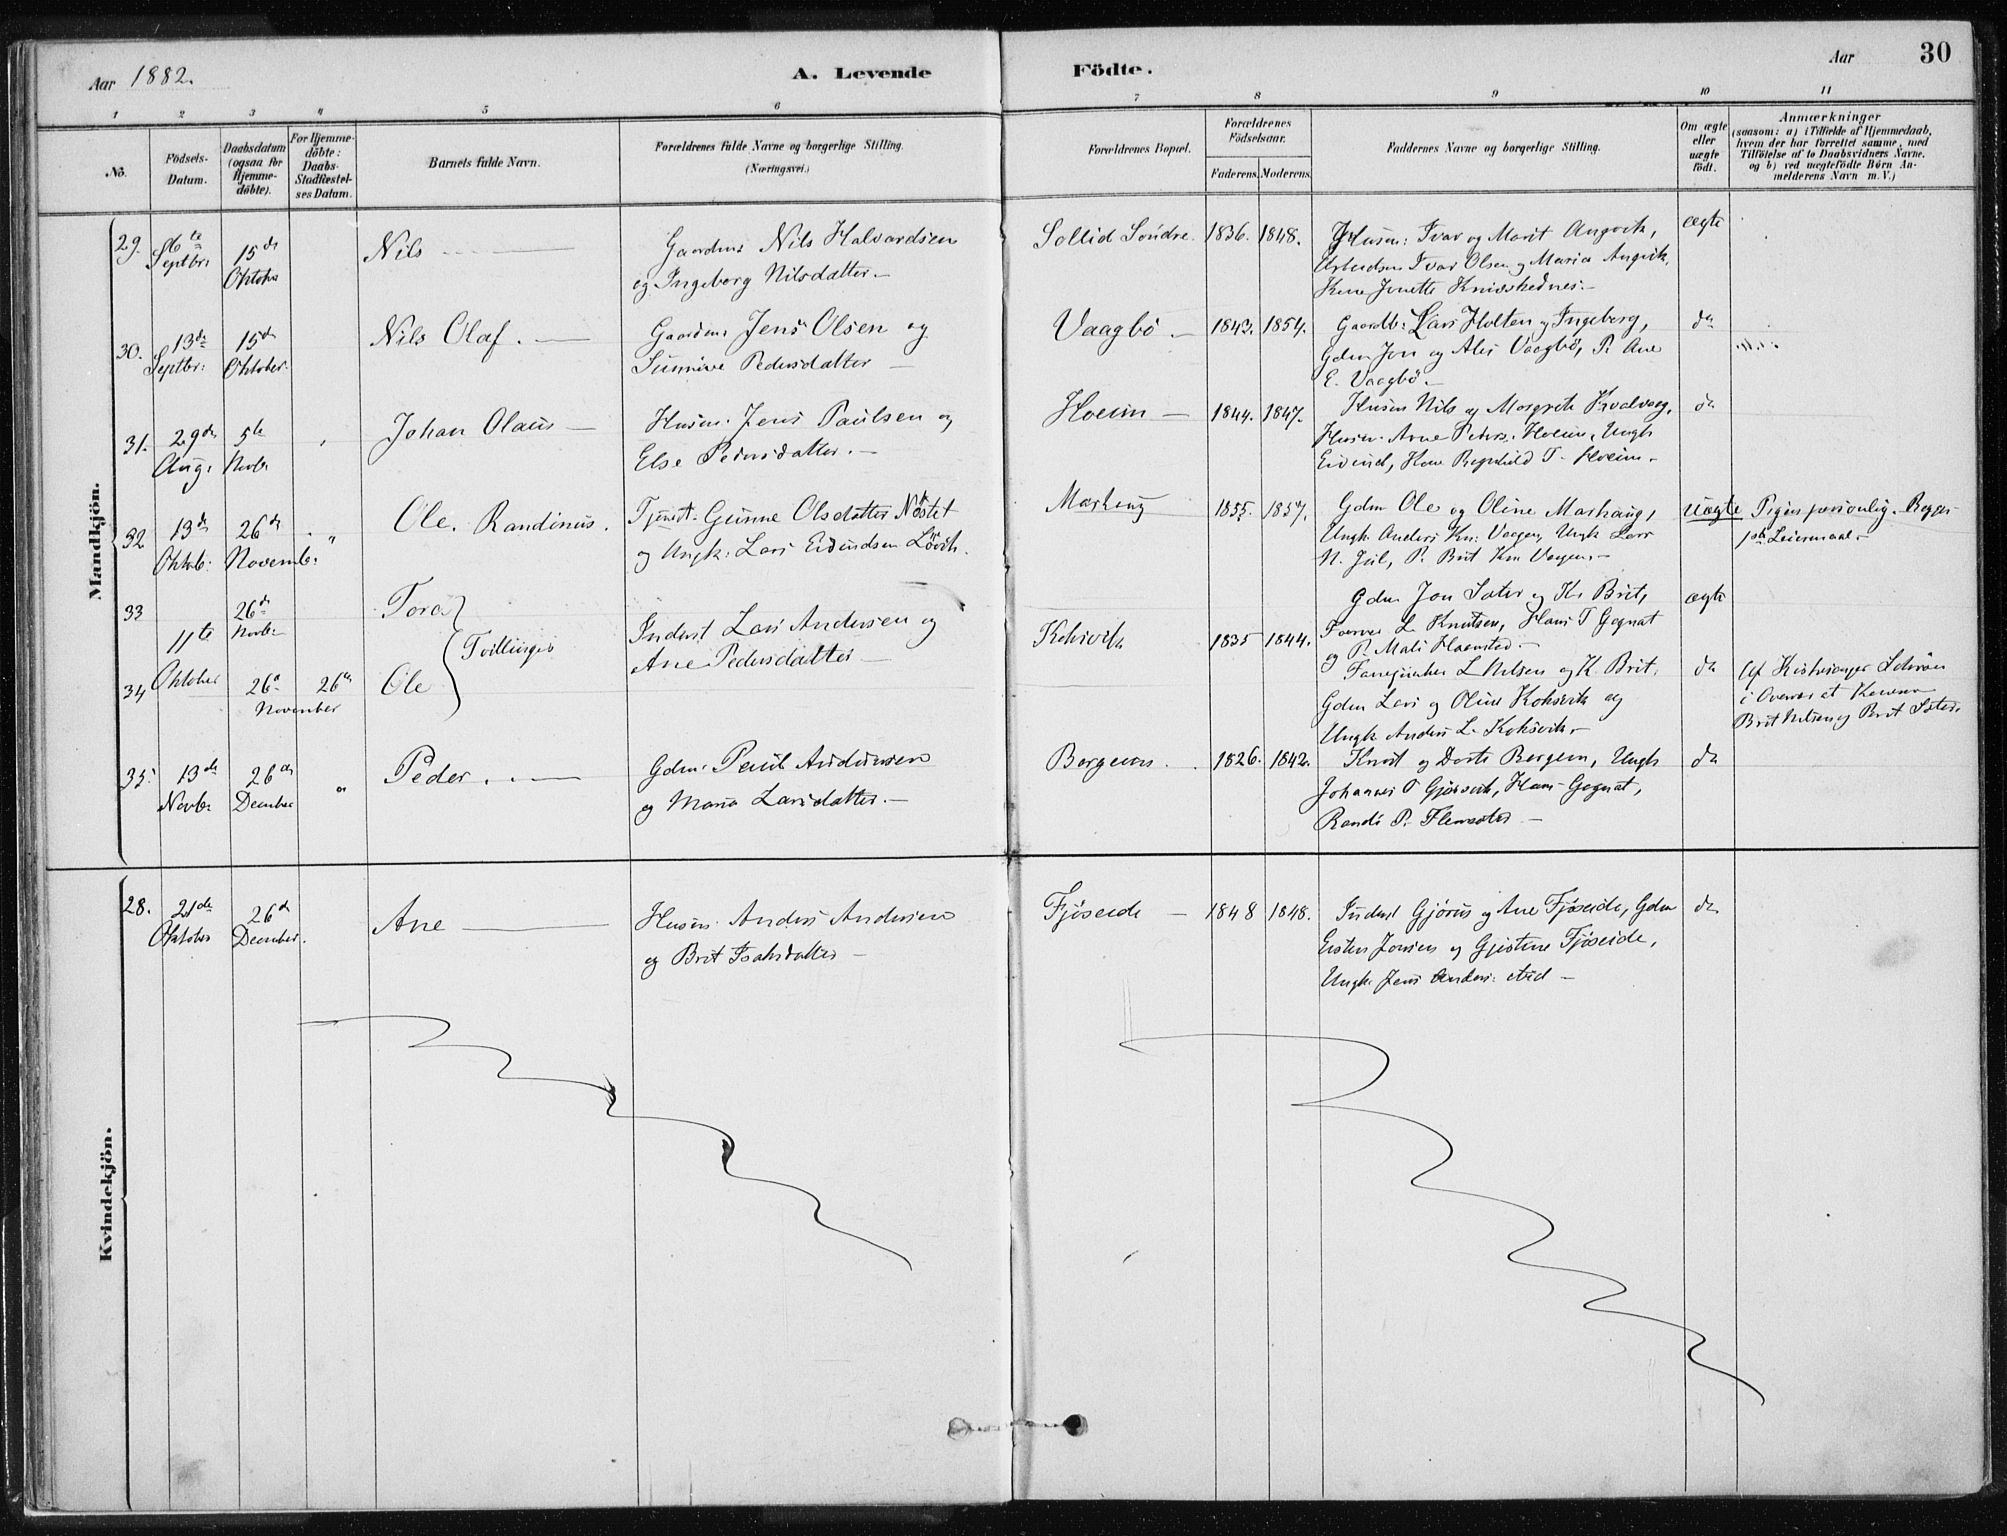 Aar 1882.
A. Levende
Födte.
Aar
30
1 2 3 4 5 6 7 8 9 10 11
No.
Födsels-
Datum.
Daabsdatum
(ogsaa for
Hjemme-
döbte).
For Hjemme-
döbte:
Daabs-
Stadfæstel-
ses Datum.
Barnets fulde Navn.
Forældrenes fulde Navne og borgerlige Stilling.
(Næringsvei.)
Forældrenes Bopæl.
Forældrenes
Födselsaar.
Faderens. Moderens.
Faddernes Navne og borgerlige Stilling.
Om ægte
eller
uægte
födt.
Anmærkninger
(saasom: a) i Tilfælde af Hjemmedaab,
hvem der har forrettet samme, med
Tilföielse af to Daabsvidners Navne.
og b) ved uægtefödte Börn An-
melderens Navn m. V.)
Mandkjön.
29.
Septbr:
15de
Oktober
Nils
Gaardm: Nils Halvardsen
og Ingeborg Nilsdatter.
Sollid Søndre.
1836. 1848.
Husm: Ivar og Marit Angvik,
Ivar Olsen og Maria Angvik,
Kone Jonette
ægte
30.
13de
Septbr:
15de
Oktober.
Nils Olaf.
Gaardm: Jens Olsen og
Sunnive Pedersdatter
Vaagbø
1843. 1854.
Gaardb: Lars Holten og Ingeborg,
Gdm Jon og Ales Vaagbø, P. Ane
E. Vaagbø.
do
31.
29de
Aug.
5te
Novb.
Johan Olaus
Husm: Jens Paulsen og
Else Pedersdatter.
Hoem
1844. 1847.
Husm Nils og Margrete Kvalvaag,
Husm. Arne Peders. Hoem, Ungk
Eivind, Kone Ragnhild T. Hoem.
do
32
13de
Oktob:
26de
Novemb:
"
Ole Randinus.
Tjenest: Gunne Olsdatter Nøstet
og Ungk: Lars Eivindsen Løvik.
Markaug
1855. 1857.
Gdm Ole og Oline Markaug,
Ungk Anders Kn: Vaagen, Ungk Lars
N. Jul, P. Brit Kn Vaagen.
uægte
Pigen personlig.
1ste Leiermaal.
33
11te
Oktober
26de
Novbr
Tore
Tvillinger
Inderst Lars Andersen og
Ane Pedersdatter
Koksvik
1835 1844.
Gdm Jon Sæter og K. Brit,
L. Knutsen, Hans T Gagnat
og P. Mali
ægte
34
26de
November
26de
Ole
L Nilsen og K. Brit.
Gdm Lars og Oline Koksvik og
Ungk Anders L. Koksvik.
do
Af
i Overvær af Konerne
Brit Nilsen og Berit Sæter.
35.
13de
Novbr
26de
December
"
Peder.
Gdm. Paul Andersen
og Maria Larsdatter.
Bergem
1826. 1842.
Knut og Dorte Bergem, Ungk
Johannes O Gjørsvik, Hans Gagnat,
Randi P. Flemsæter
do
Kvindekjön.
28.
21de
Oktober
26de
December.
Ane
Husm. Anders Andersen
og Brit Isaksdatter
Fjøseide
1848 1848.
Inderst Gjørus og Ane Fjøseide, Gdm
Esten Jonsen og Gjertine Fjøseide,
Ungk Jens Anders:
do